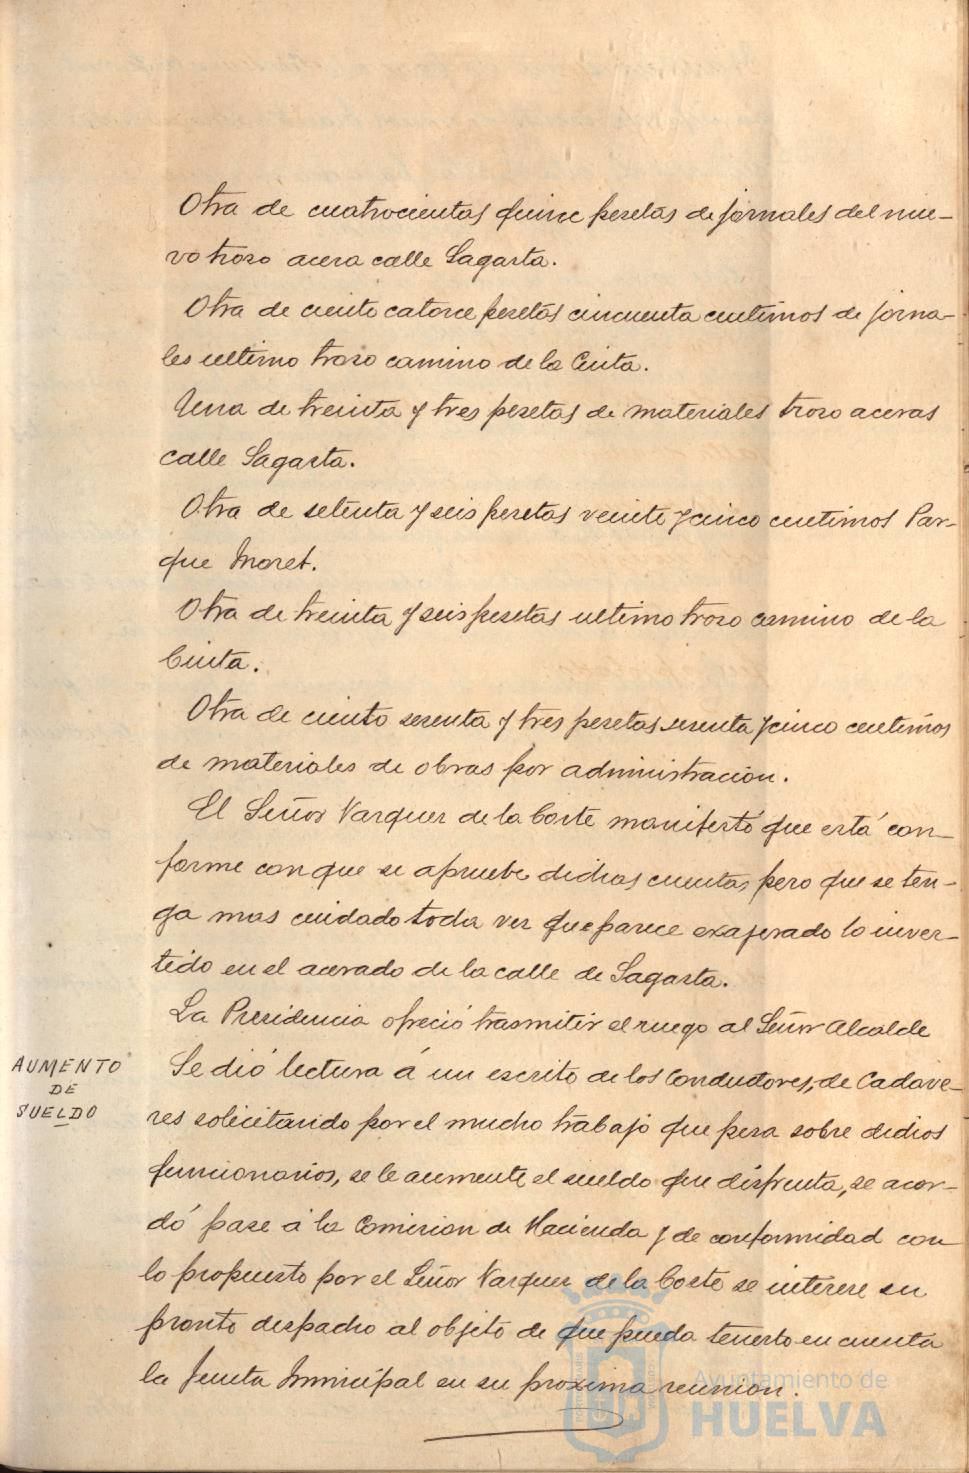 Otra de cuatrocientas quince pesetas de jornales del nue-
vo trozo acera calle Sagasta.
Otra de ciento catorce pesetas cincuenta centimos de jorna-
les ultimo trozo camino de la Cinta.
Una de treinta y tres pesetas de materiales trozo aceras
calle Sagasta.
Otra de setenta y seis pesetas veinte y cinco centimos Par-
que Moret.
Otra de treinta y seis pesetas ultimo trozo camino de la
Cinta.
Otra de ciento sesenta y tres pesetas sesenta y cinco centimos
de materiales de obras por administracion.
El Señor Vazquez de la Corte manifestó que está con-
forme con que se apruebe dichas cuentas, pero que se ten-
ga mas cuidado toda vez que parece exajerado lo inver-
tido en el acerado de la calle de Sagasta.
La Presidencia ofreció trasmitir el ruego al Señor Alcalde
AUMENTO
DE
SUELDO
Se dió lectura á un escrito de los Conductores, de Cadave-
res solicitando por el mucho trabajo que pesa sobre dichos
funcionarios, se le aumente el sueldo que disfruta, se acor-
dó pase á la Comision de Hacienda y de conformidad con
lo propuesto por el Señor Vazquez de la Corte se interese su
pronto despacho al objeto de que pueda tenerlo en cuenta
la Junta Municipal en su proxima reunion.
Ayuntamiento de
HUELVA